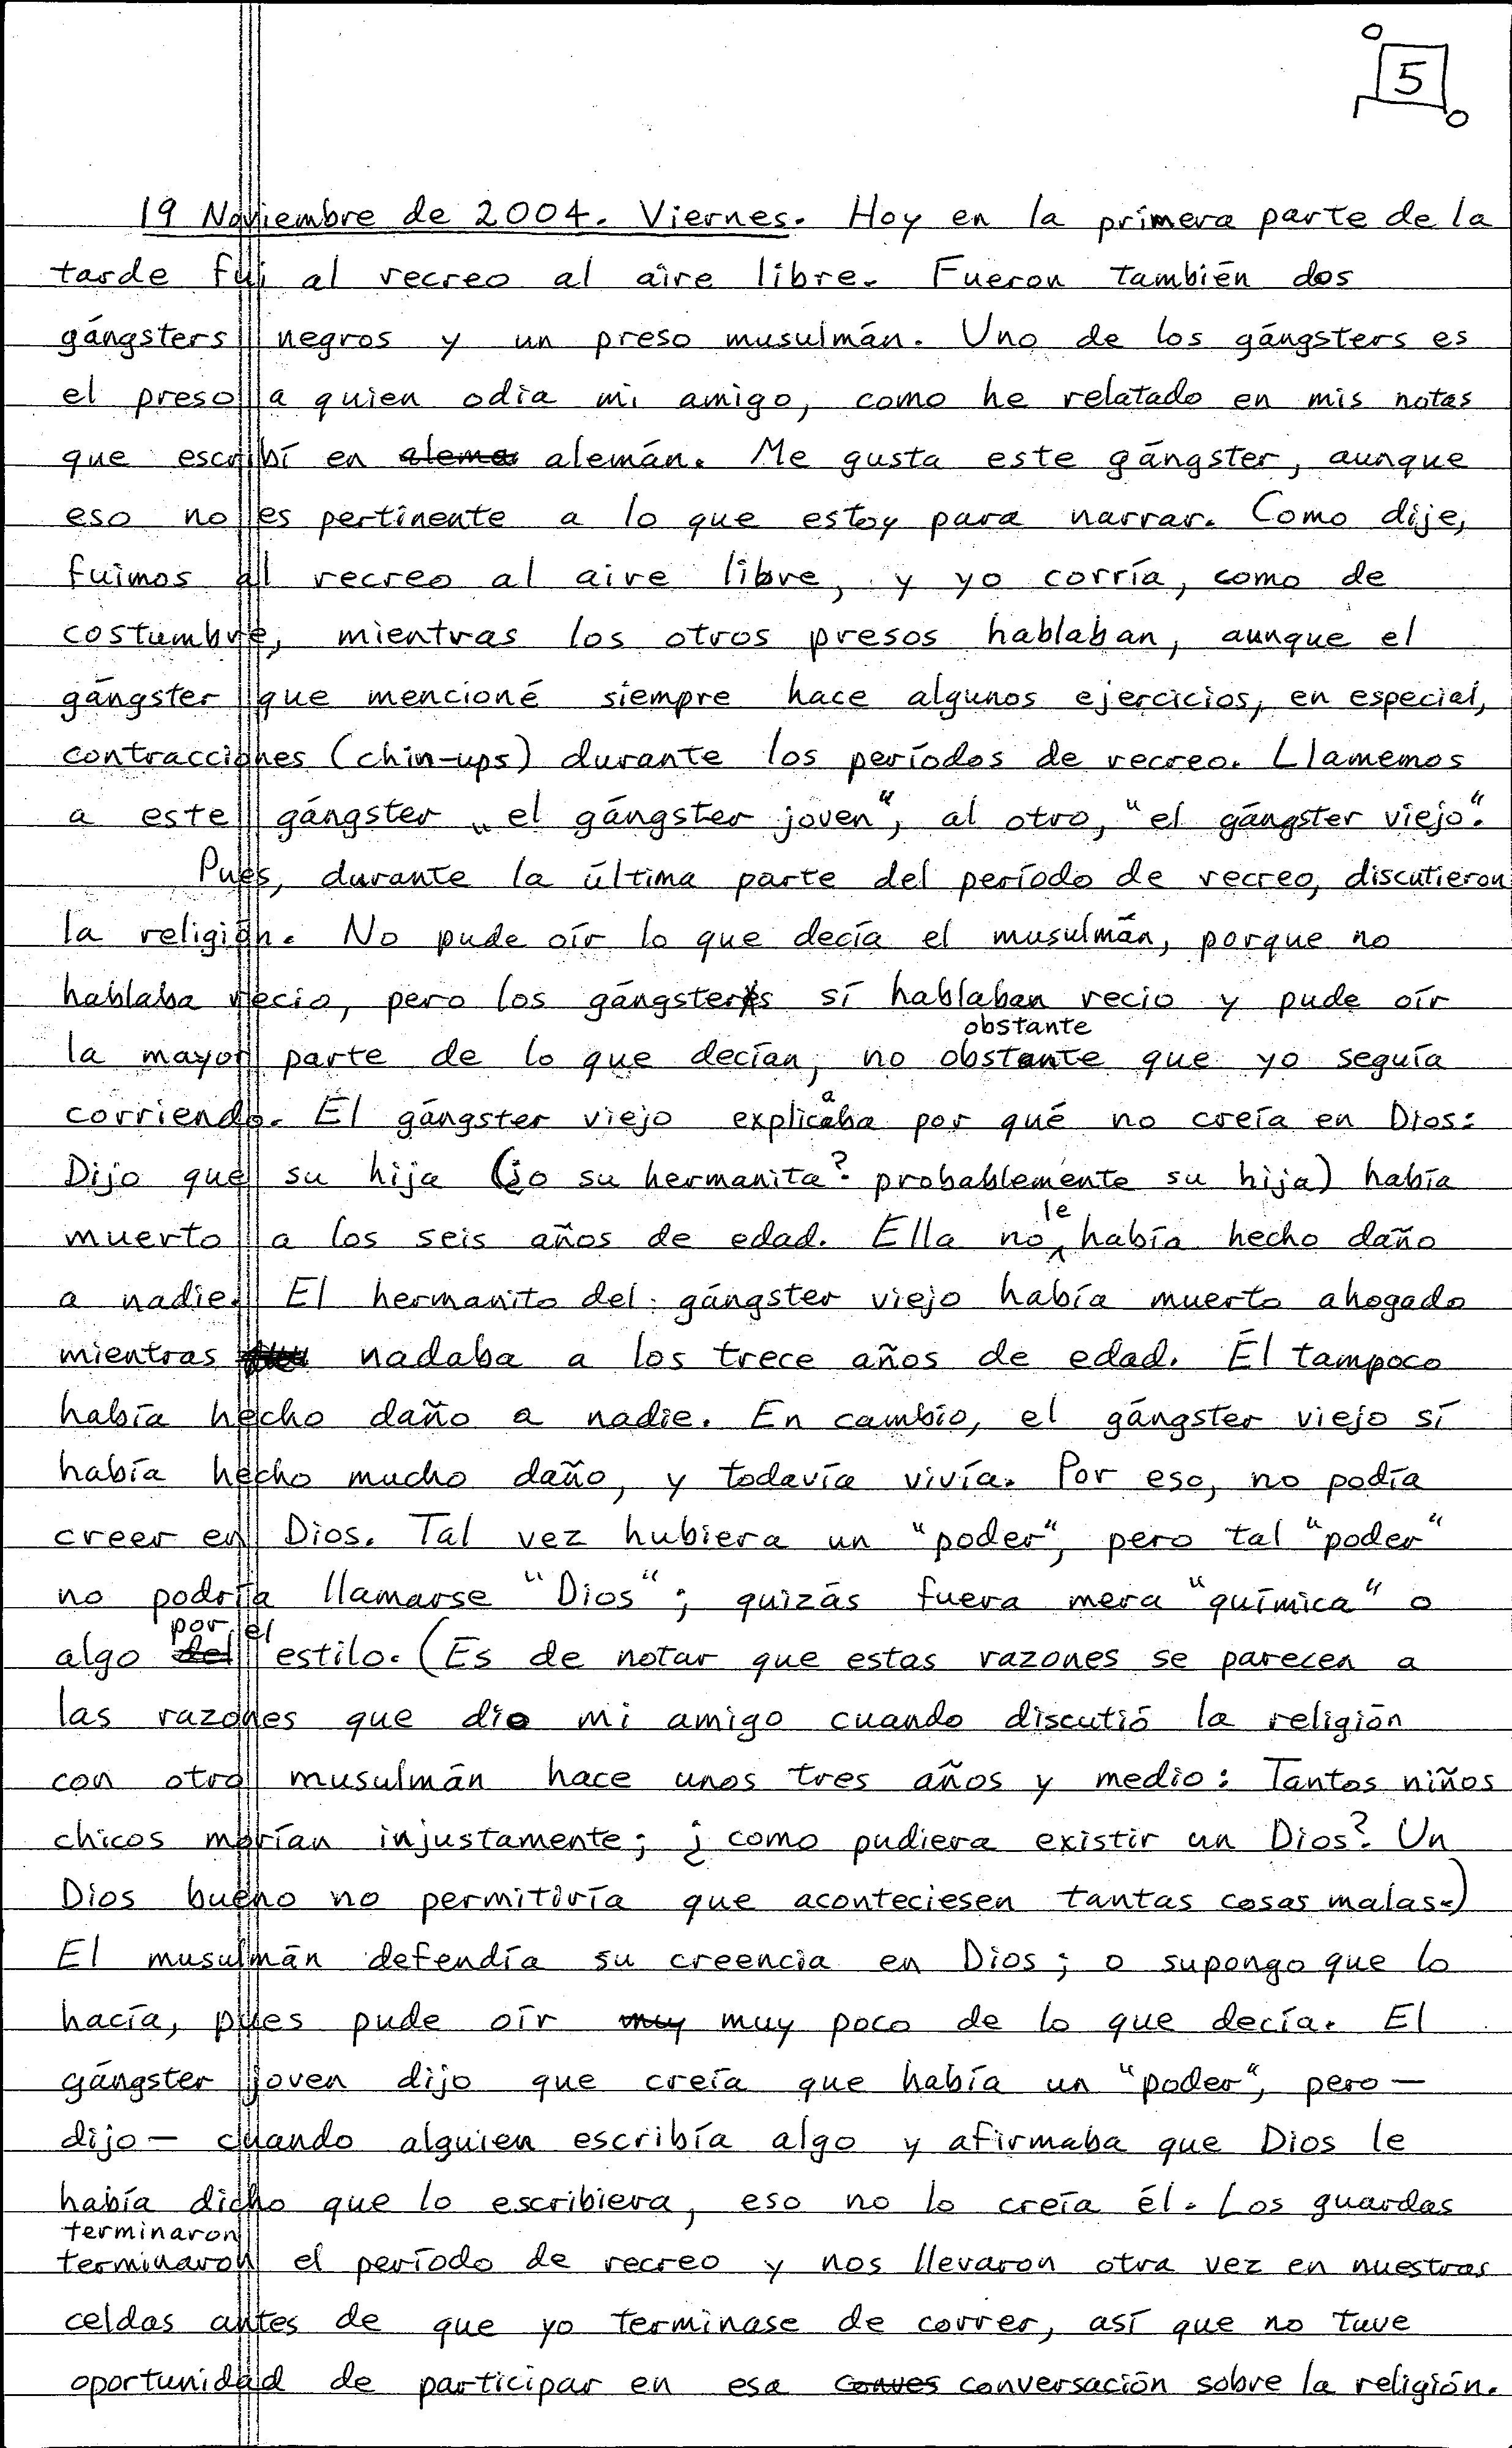 5
19 Noviembre de 2004. Viernes. Hoy en la primera parte de la
tarde fui al recreo al aire libre. Fueron también dos
gángsters negros y un preso musulmán. Uno de los gángsters es
el preso a quien odia mi amigo, como he relatado en mis notas
que escribí en alema alemán. Me gusta este gángster, aunque
eso no es pertinente a lo que estoy para narrar. Como dije,
fuimos al recreo al aire libre, y yo corría, como de
costumbre, mientras los otros presos hablaban, aunque el
gángster que mencioné siempre hace algunos ejercicios, en especial,
contracciones (chin-ups) durante los períodos de recreo. Llamemos
a este gángster „el gángster joven“, al otro, “el gángster viejo“.
Pues, durante la última parte del período de recreo, discutieron
la religión. No pude oír lo que decía el musulmán, porque no
hablaba recio, pero los gángsters sí hablaban recio y pude oír
obstante
la mayor parte de lo que decían, no obstante que yo seguía
a
corriendo. El gángster viejo explicaba por qué no creía en Dios:
Dijo que su hija (¿o su hermanita? probablemente su hija) había
le
muerto a los seis años de edad. Ella no ^ había hecho daño
a nadie. El hermanito del gángster viejo había muerto ahogado
mientras nadaba a los trece años de edad. Él tampoco
había hecho daño a nadie. En cambio, el gángster viejo sí
había hecho mucho daño, y todavía vivía. Por eso, no podía
creer en Dios. Tal vez hubiera un “poder“, pero tal “poder“
no podría llamarse “Dios“; quizás fuera mera “química“ o
por el
algo del estilo. (Es de notar que estas razones se parecen a
las razones que dio mi amigo cuando discutió la religión
con otro musulmán hace unos tres años y medio: Tantos niños
chicos morían injustamente; ¿como pudiera existir un Dios? Un
Dios bueno no permitiría que aconteciesen tantas cosas malas.)
El musulmán defendía su creencia en Dios; o supongo que lo
hacía, pues pude oír muy muy poco de lo que decía. El
gángster joven dijo que creía que había un “poder“, pero —
dijo — cuando alguien escribía algo y afirmaba que Dios le
había dicho que lo escribiera, eso no lo creía él. Los guardas
terminaron
terminaron el período de recreo y nos llevaron otra vez en nuestras
celdas antes de que yo terminase de correr, así que no tuve
oportunidad de participar en esa conves conversación sobre la religión.